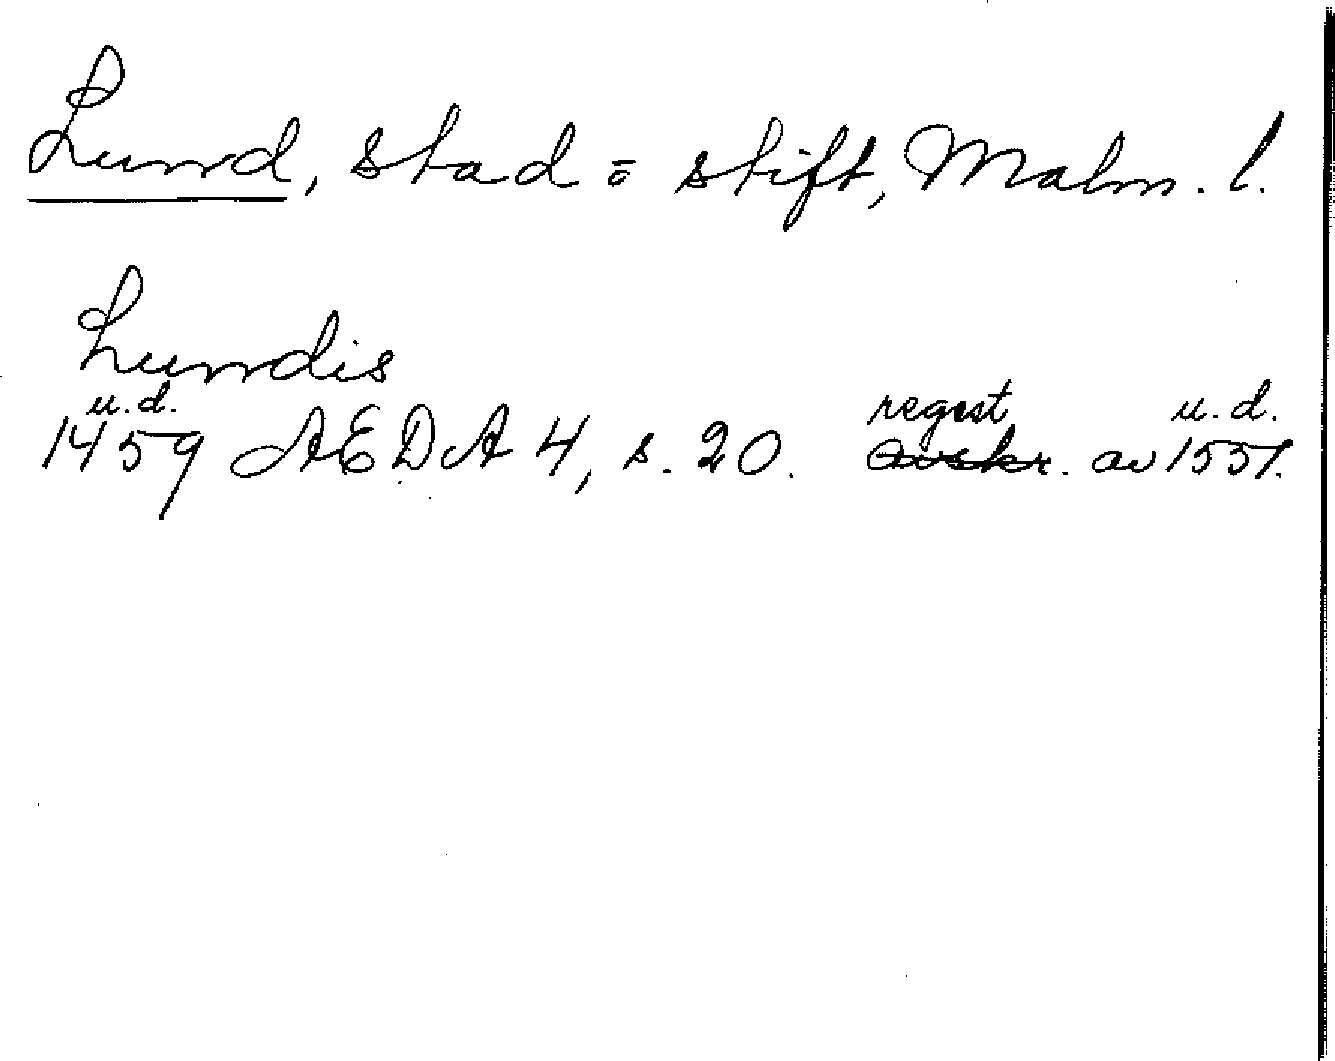 Lund, stad = stift, Malm. l.
Lundis
u.d. regest u.d.
1459 AEDA 4, s. 20. avskr. av 1551.